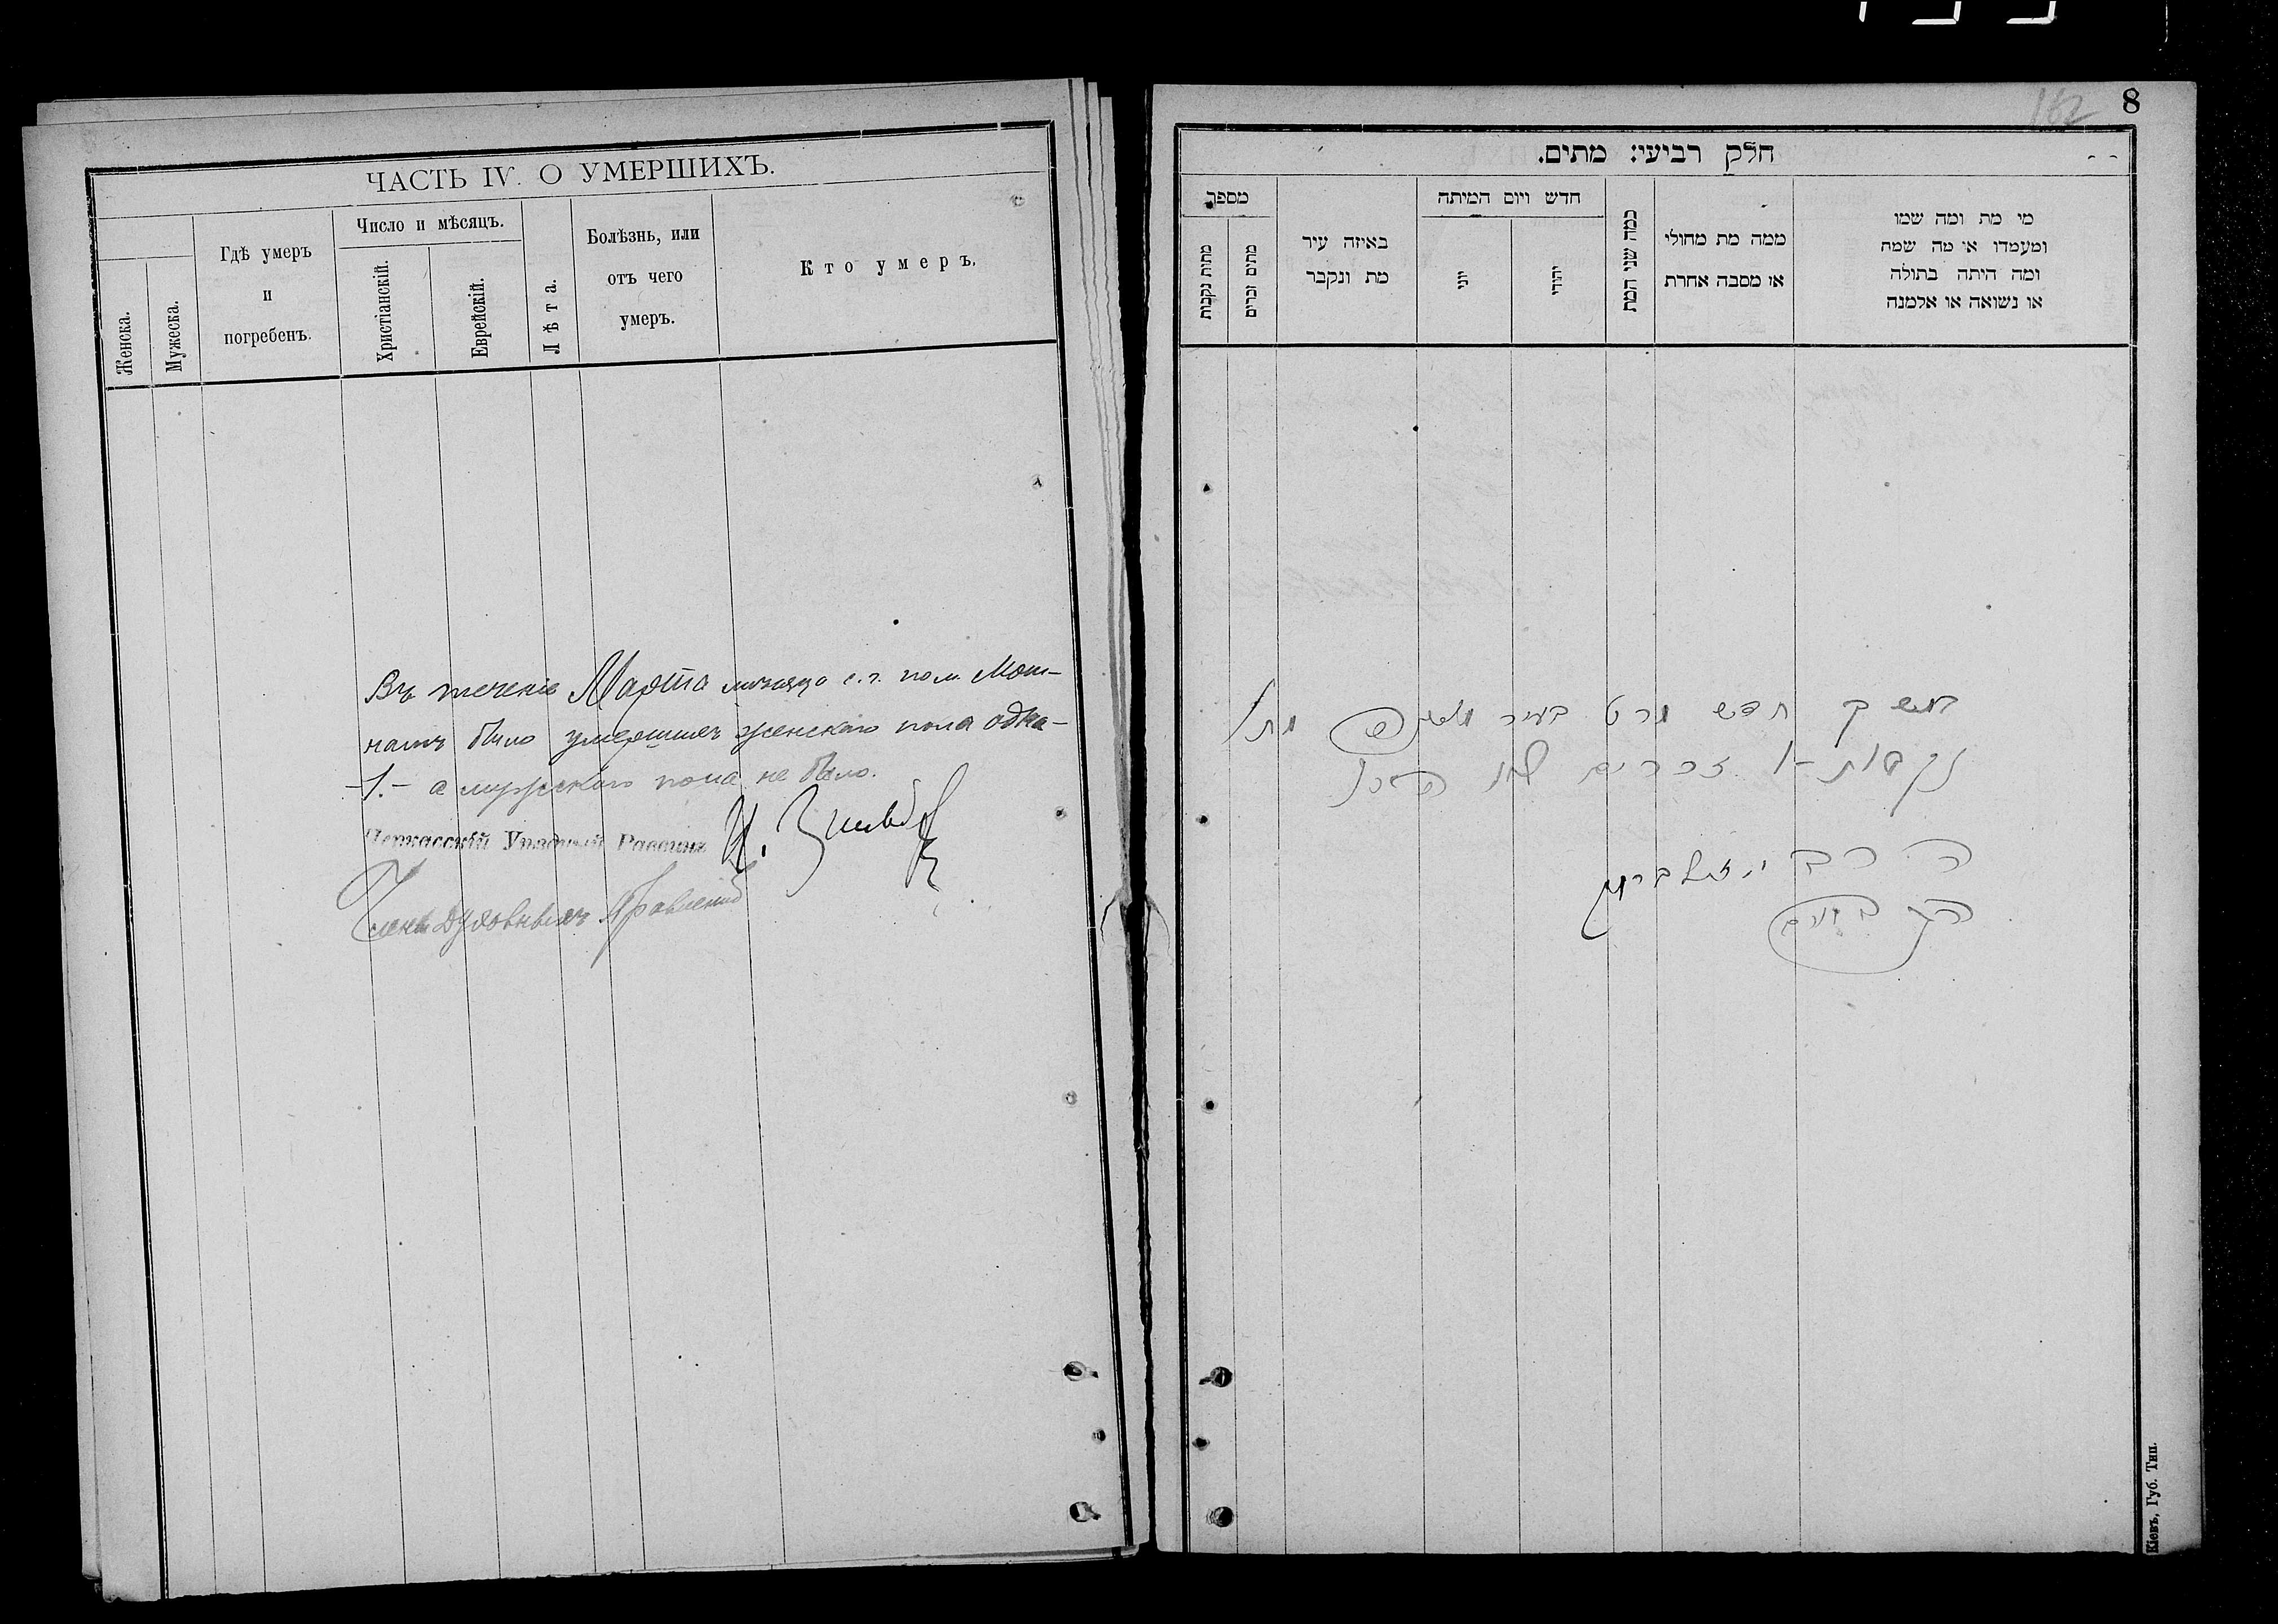 ЧАСТЬ IV. О УМЕРШИХЪ.
Женска.
Мужеска.
Гдѣ умеръ
и
погребенъ.
Число и мѣсяцъ.
Христіанскій.
Еврейскій.
Лѣта.
Болѣзнь, или
отъ чего
умеръ.
Кто умеръ.
Въ теченіе Марта мѣсяца с.г. по м. Мош-
намъ было умершихъ женскаго пола одна-
-1.- а мужскаго пола не было.
Черкасскій Уѣздный Раввинъ И.
Духовныхъ Правленій
8
162
חלק רביעי: מתים.
מספר
מתות נקבות
מתים זכרים
באיזה עיר
מת ונקבר
חדש ויום המיתה
יוני
יהודי
כמה שני המת
ממה מת מחולי
או מסבה אחרת
מי מת ומה שמו
ומעמדו או מה שמה
ומה היתה בתולה
או נשואה או אלמנה
במשך חדש מרט בעיר מתו
נקבות -1 זכרים
הרב
Кіевъ, Губ. Тип.